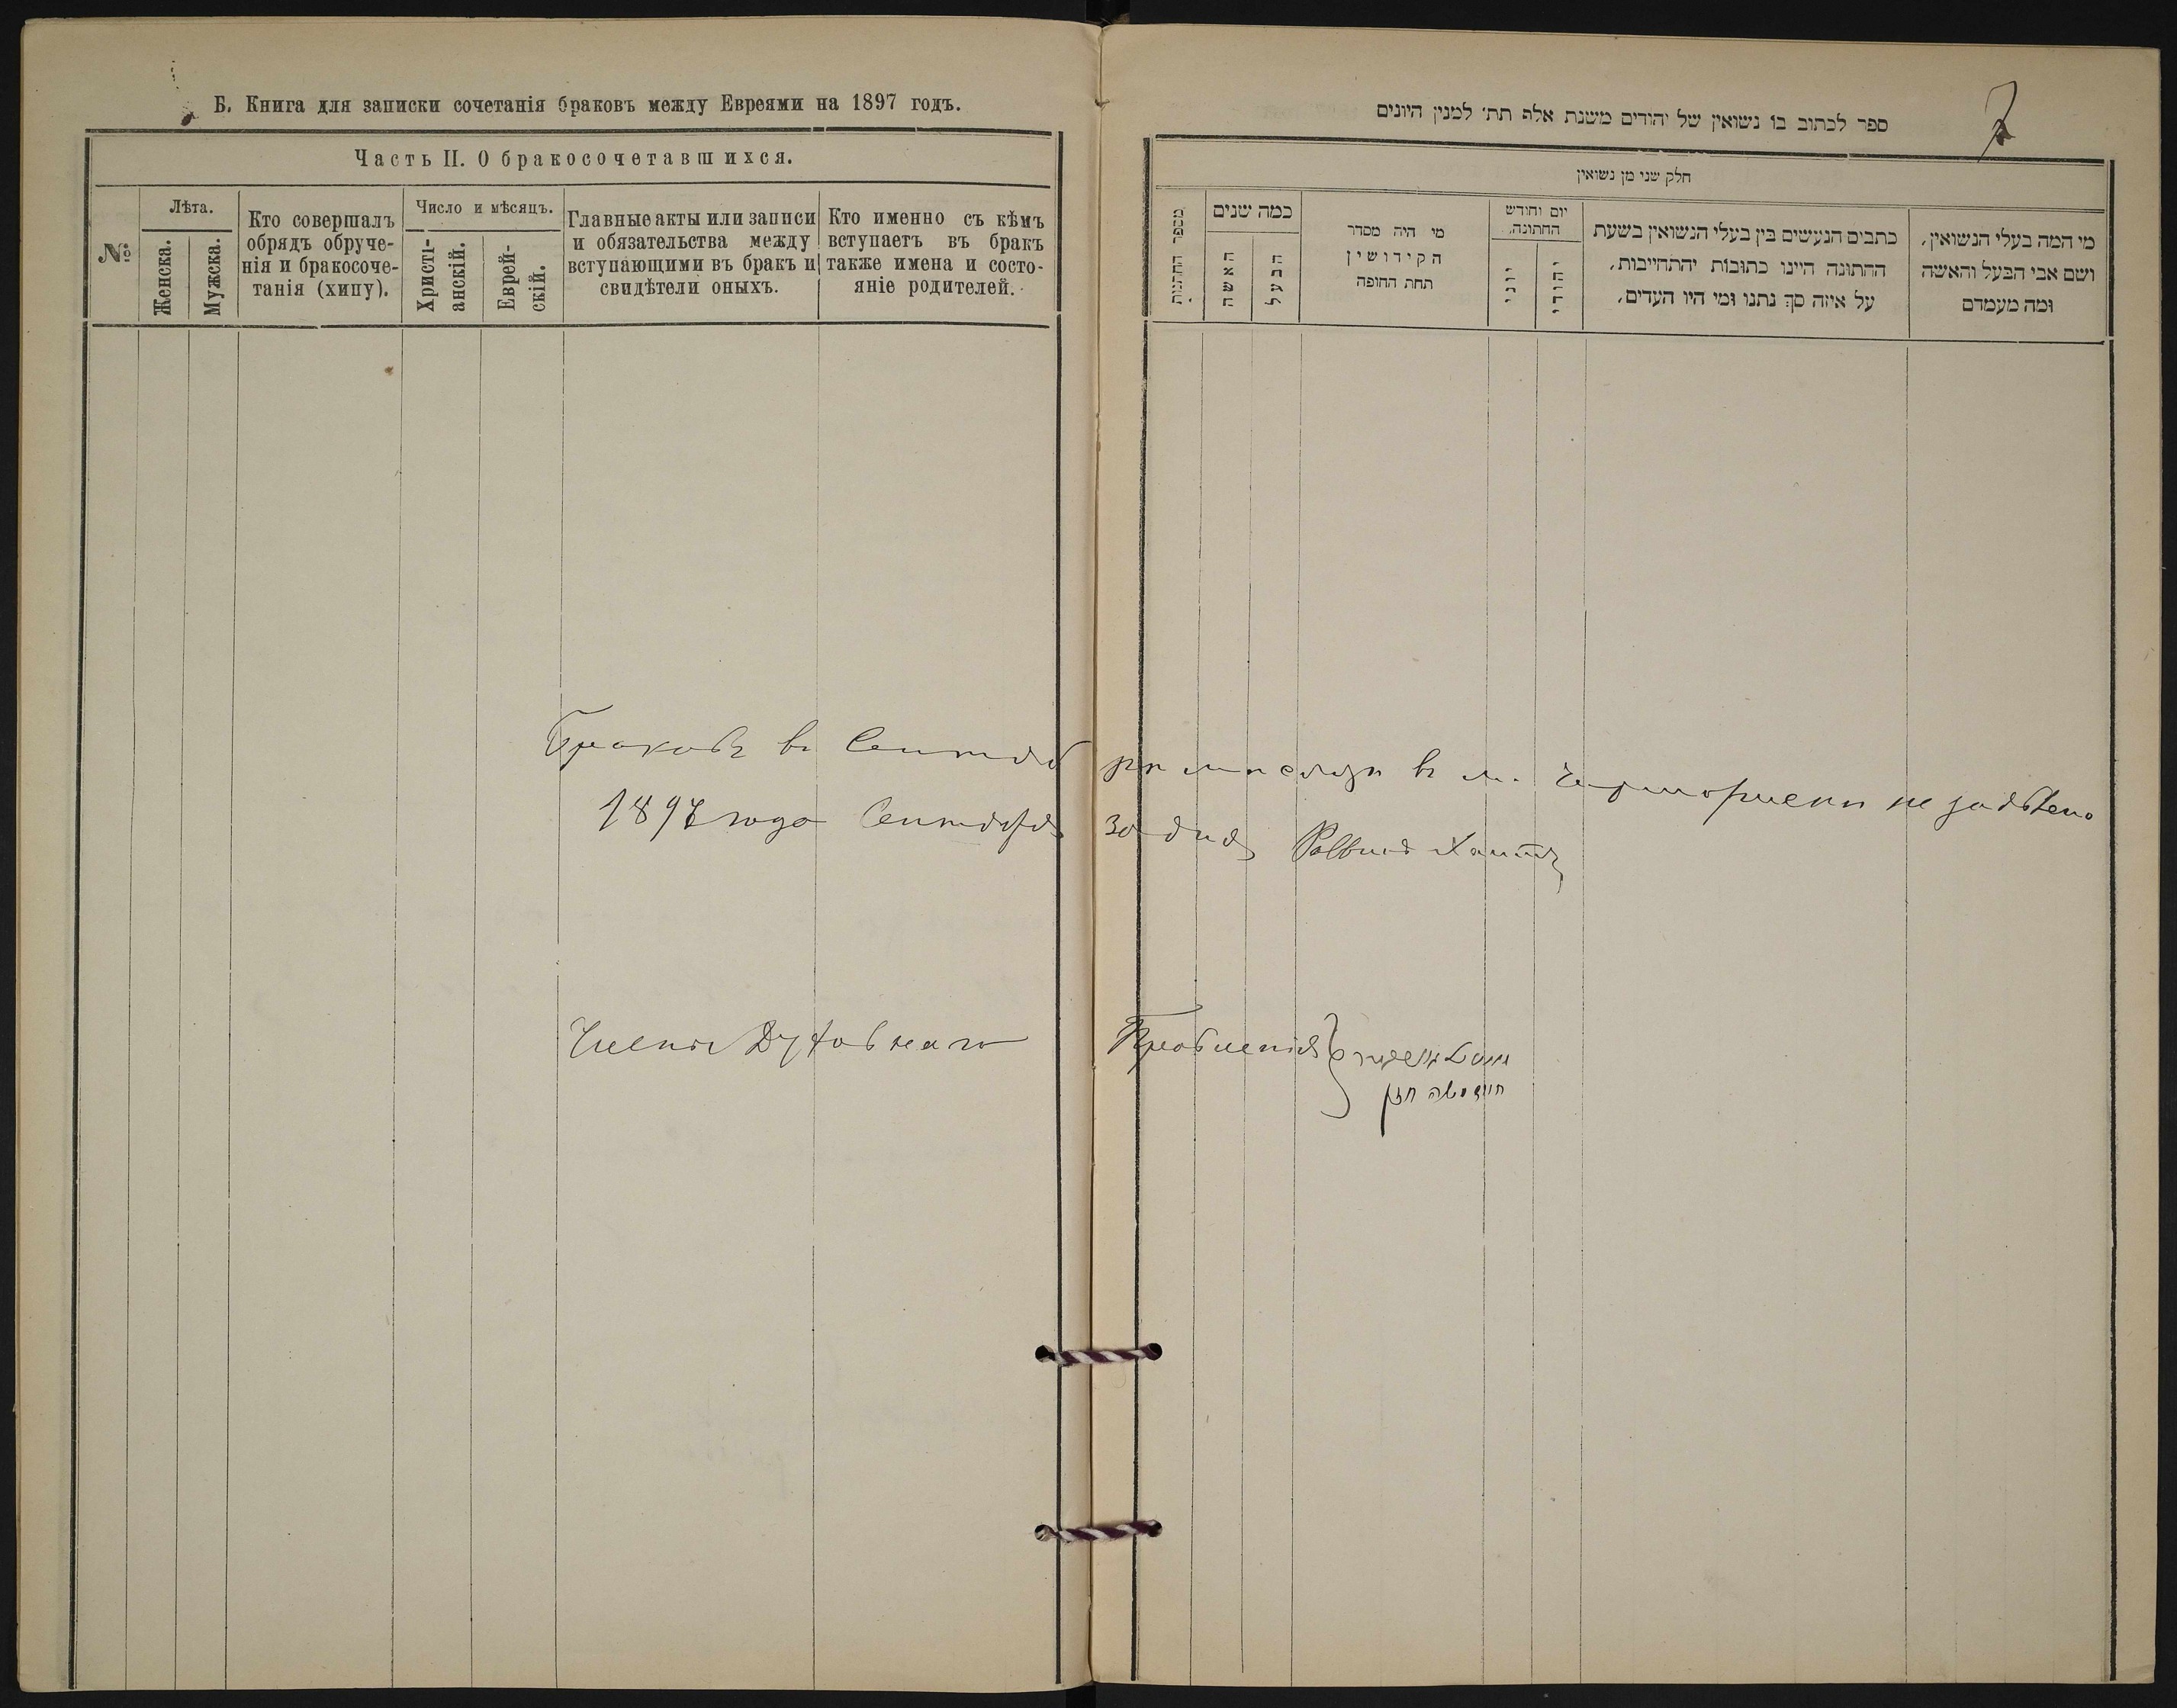 Б. Книга для записки сочетанія браковъ между Евреями на 1897 годъ.
Часть II. О бракосочетавшихся.
№
Лѣта.
Женска.
Мужска.
Кто совершалъ
обрядъ обруче-
нія и бракосоче-
танія (хипу).
Число и мѣсяцъ.
Христі-
анскій.
Еврей-
скій.
Главные акты или записи
и обязательства между
вступающими въ бракъ и
свидѣтели оныхъ.
Кто именно съ кѣмъ
вступаетъ въ бракъ
также имена и состо-
яніе родителей.
7
ספר לכתוב בו נשואין של יהודים משנת אלף תת׳ למנין היונים
חלק שני מן נשואין
מי המה בעלי הנשואין,
ושם אבי הבעל והאשה
ומה מעמדם
כתבים הנעשים בין בעלי הנשואין בשעת
החתונה היינו כתובות והתחייבות,
על איזה סך נתנו ומי היו העדים,
יום וחודש
החתונה,
יהודי
יוני
מי היה מסדר
הקידושין
תחת החופה
כמה שנים
הבעל
האשה
מספר החתונות
Браковъ въ Сентябрѣ мѣсяцѣ въ м. не заявлено
1897 года Сентября 30 дня Раввинъ
Члены Духовнаго Правленія
חזן